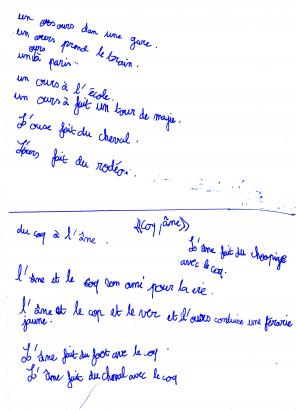 un ours dan une gare.
un ours prend le train.
ours
un à paris.
un ours à l'école.
un ours à fait un tour de magie.
L'ourse fait du cheval.
L'ours fait du rodéo.
du coq à l'âne.
((coq, âne))
L'âne fait du
avec le coq.
l'âne et le coq son ami pour la vie.
l'âne et le coq et le ver et l'ours conduise une férarie
jaune.
L'âne fait du foot avec le coq
L'âne fait du cheval avec le coq